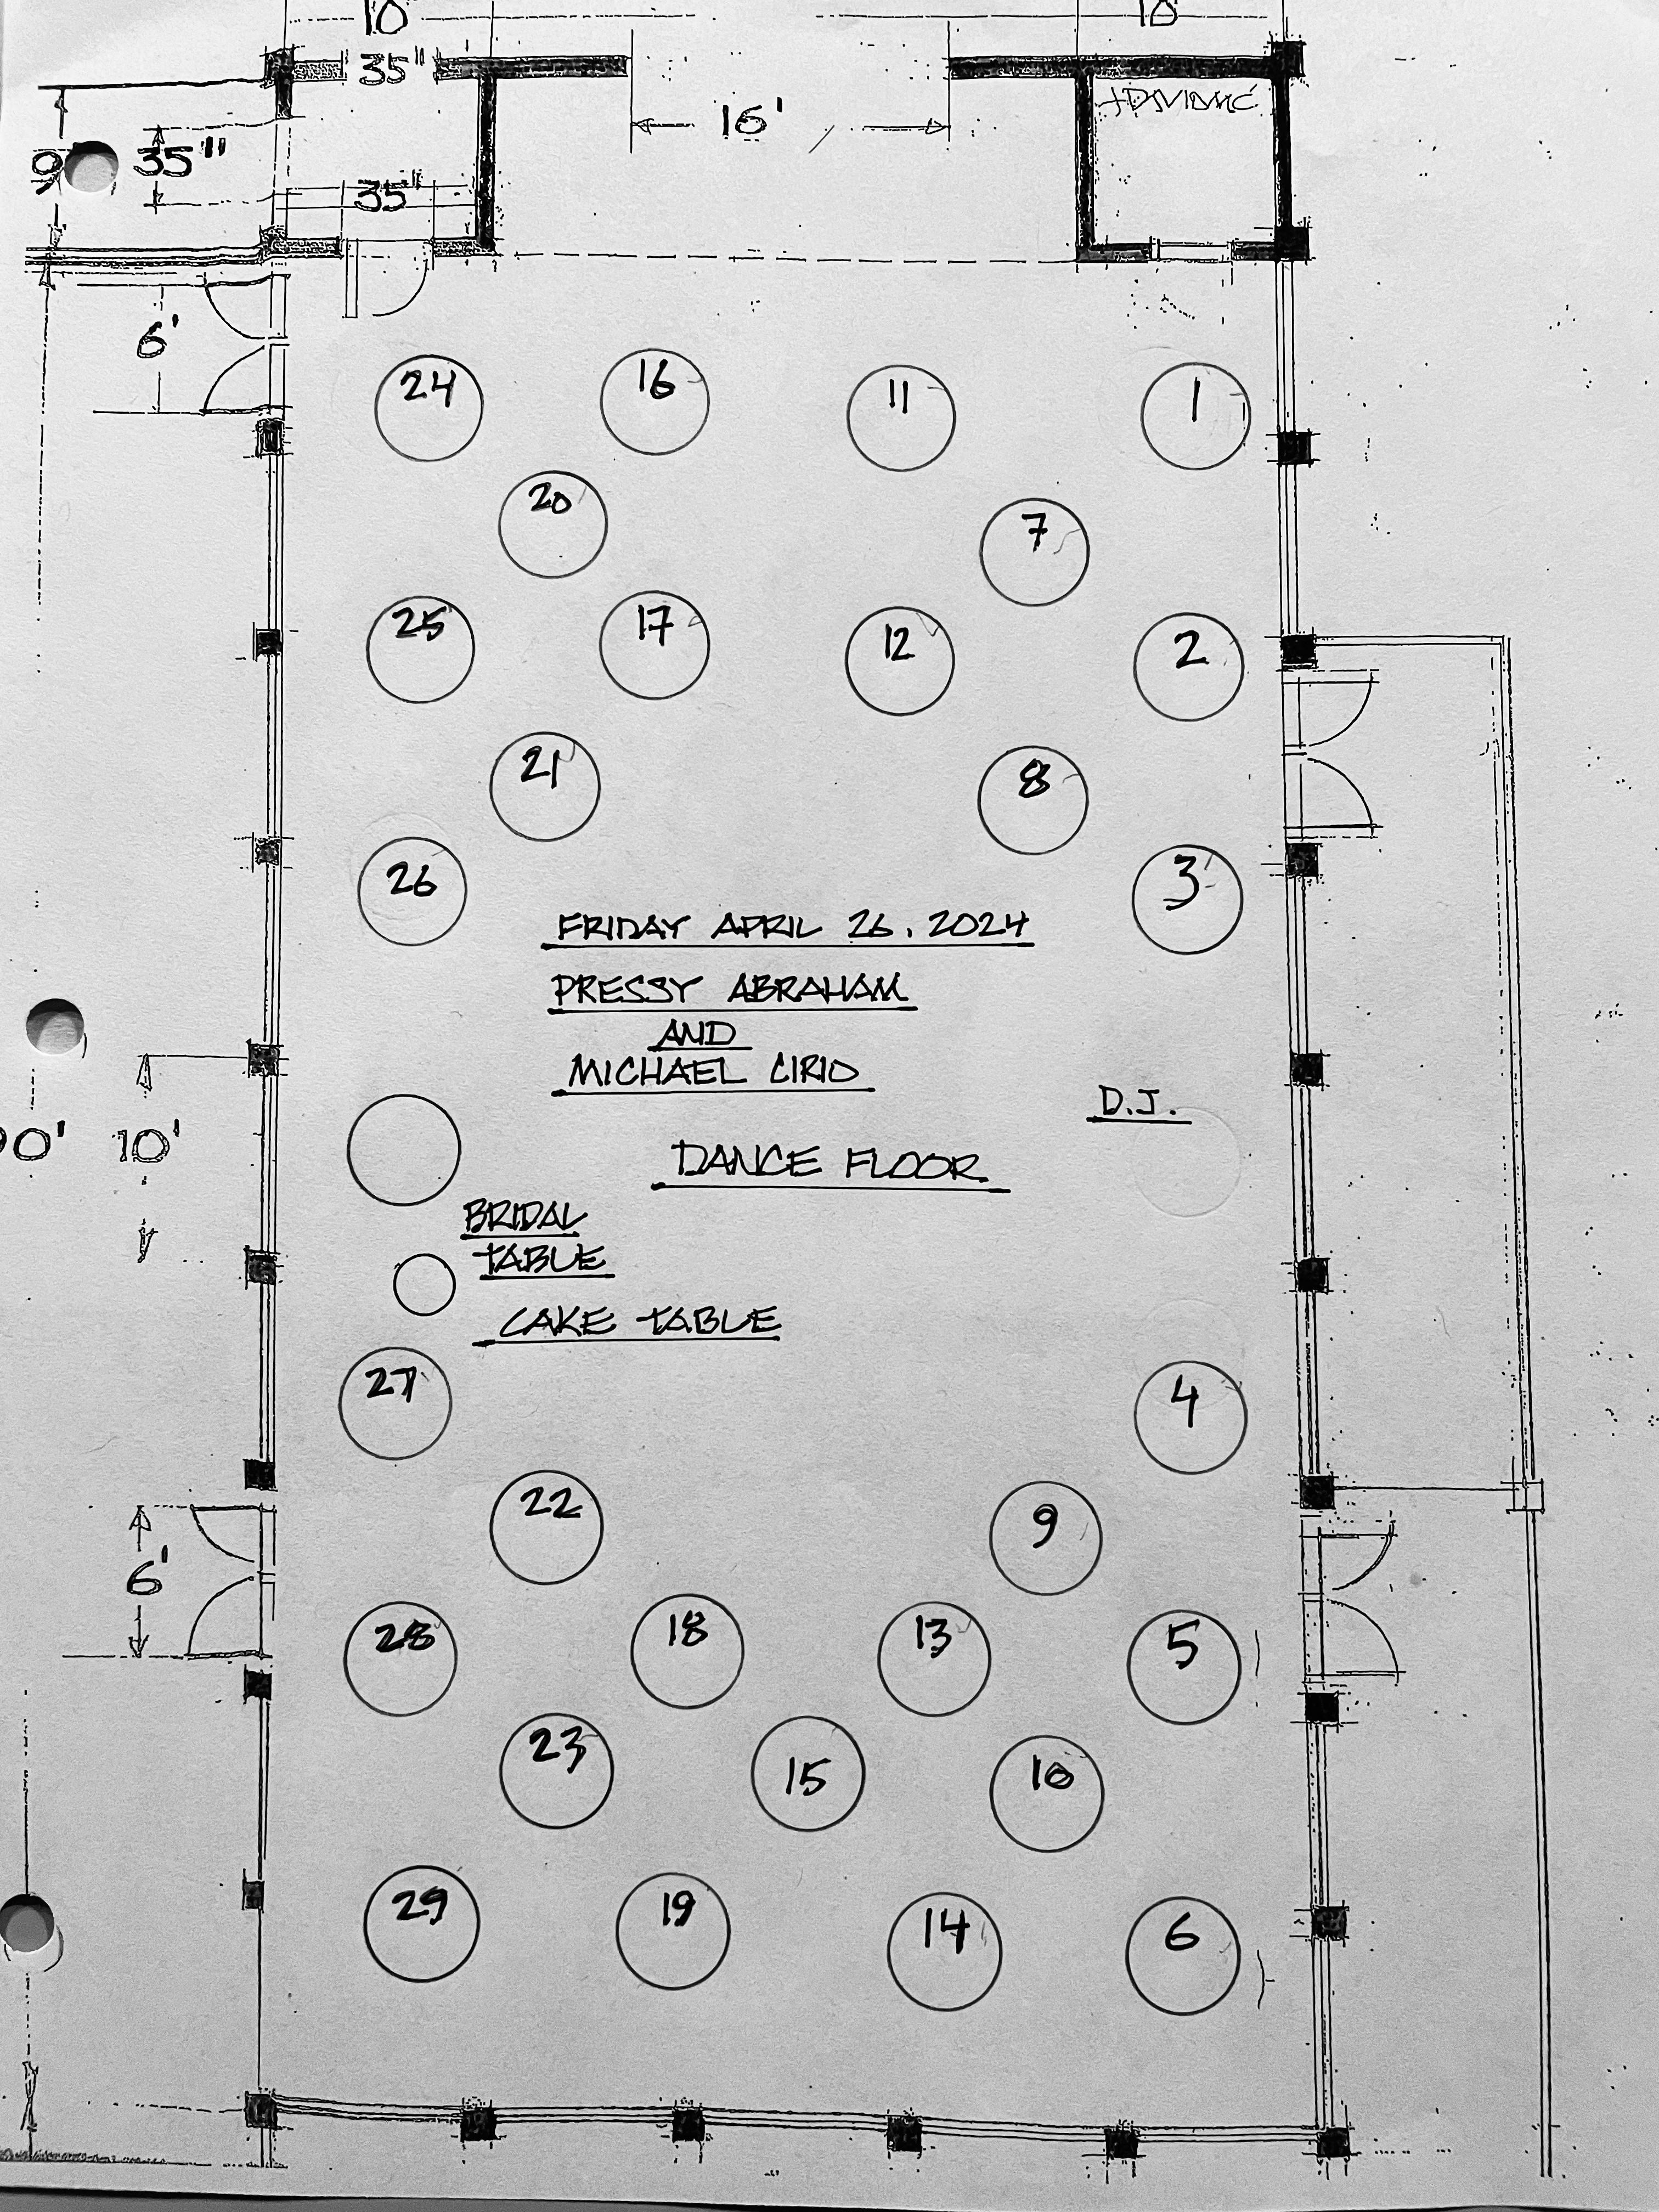 10'
10'
35"
16'
9
35"
35"
6'
24
16
11
1
20
7
25
17
12
2
21
8
26
3
FRIDAY APRIL 26, 2024
PRESSY ABRAHAM
AND
MICHAEL CIRIO
D.J.
90' 10'
DANCE FLOOR
BRIDAL
TABLE
CAKE TABLE
27
4
22
9
6'
28
18
13
5
23
15
10
29
19
14
6